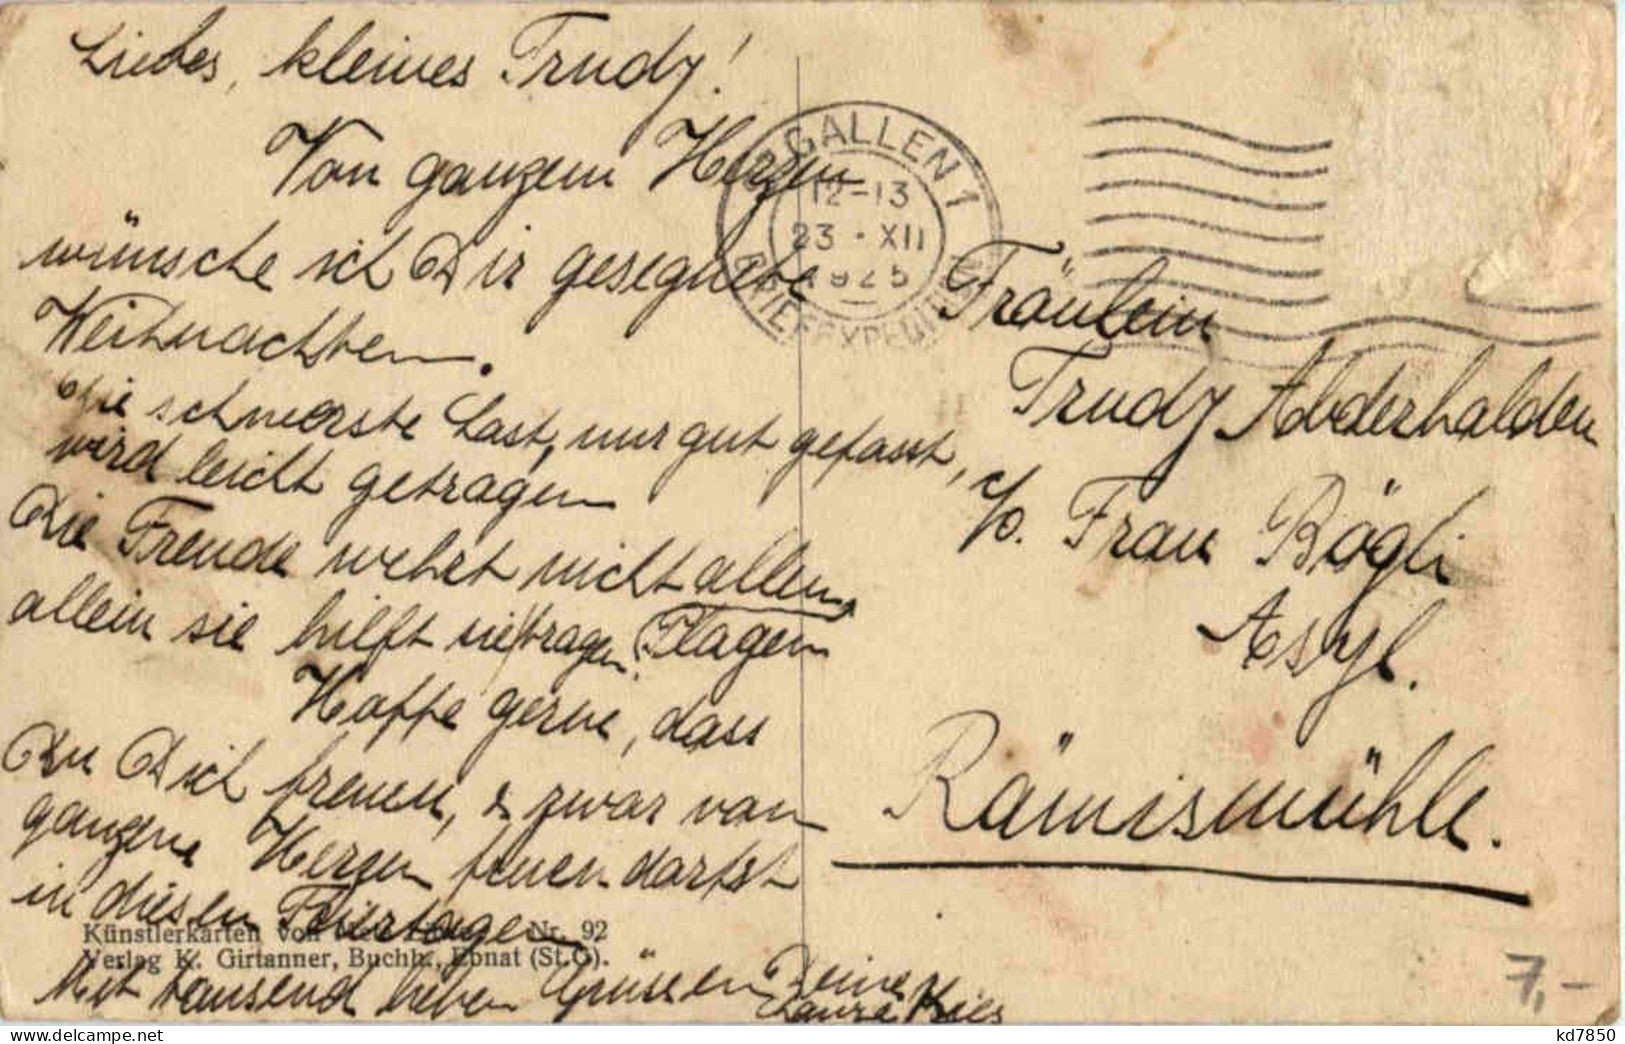 Liebes, kleines Trudy!
Von ganzem Herzen
wünsche ich Dir gesegnete
Weihnachten.
Die schwerste Last, nur gut gefasst,
wird leicht getragen
Die Freude wehrt nicht allen
allein sie hilft sie tragen. Plagen
Hoffe gerne, dass
Du Dich freuen, & zwar von
ganzem Herzen freuen darfst
in diesen Feiertagen
Mit tausend lieben Grüssen Deine
Laura
GALLEN 1
12-13
23 · XII
1925
BRIEFEXPEDITION
Fräulein
Trudy Abderhalden
c/o. Frau Bögli
Asyl.
Rämismühle.
Künstlerkarten von Nr. 92
Verlag K. Girtanner, Buchh., Ebnat (St.G).
7,-
kd7850